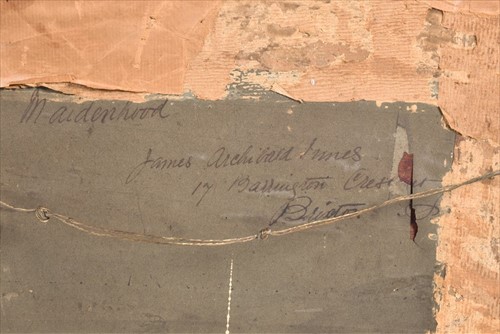 Maidenhood
James Archibald Innes
17 Barrington Crescent
Brixton